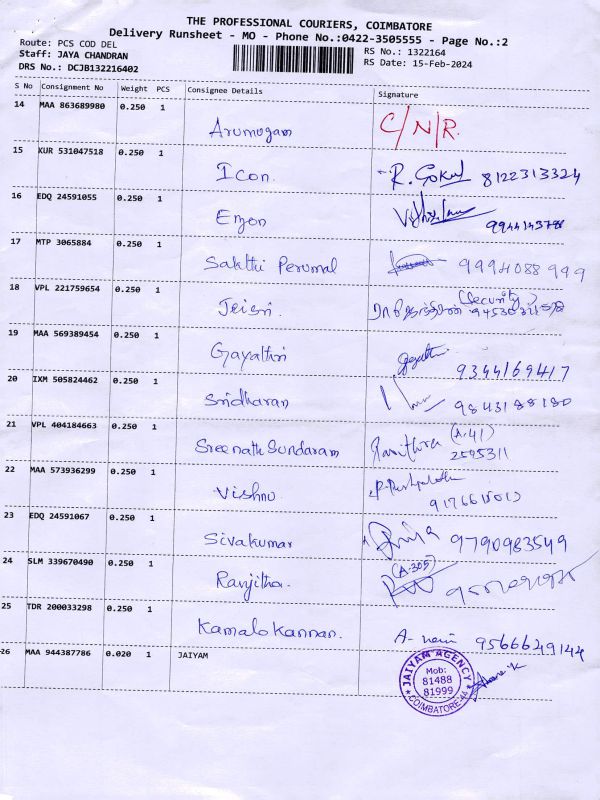 THE PROFESSIONAL COURIERS, COIMBATORE
Delivery Runsheet - MO - Phone No.:0422-3505555 - Page No.:2
Route: PCS COD DEL
RS No.: 1322164
Staff: JAYA CHANDRAN
RS Date: 15-Feb-2024
DRS No.: DCJB132216402
S No Consignment No Weight PCS Consignee Details Signature
14 MAA 863689980 0.250 1 Arumugam C/N/R.
15 KUR 531047518 0.250 1 Icon. R. Gokul 8122313324
16 EDQ 24591055 0.250 1 Emon
17 MTP 3065884 0.250 1 Sakthi Perumal 9994088999
18 VPL 221759654 0.250 1 (Security)
19 MAA 569389454 0.250 1 Gayathri gayathri 9344169417
20 IXM 505824462 0.250 1 Sridharan 9843188180
21 VPL 404184663 0.250 1 Sreenath Sundaram Pavithra (A-41) 2595311
22 MAA 573936299 0.250 1 Vishnu
23 EDQ 24591067 0.250 1 Sivakumar Priya 9790983549
24 SLM 339670490 0.250 1 Ranjitha. (A-305)
25 TDR 200033298 0.250 1 Kamalo Kannan. 9566649144
26 MAA 944387786 0.020 1 JAIYAM
JAIYAM AGENCY
Mob:
81488
81999
COIMBATORE-44